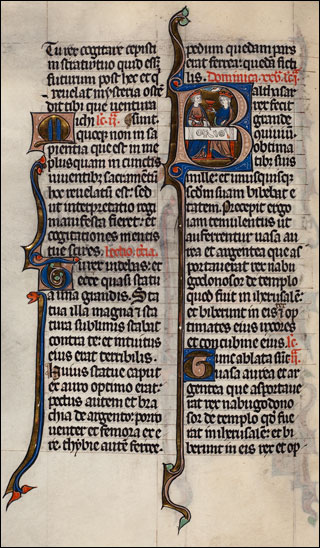 Tu rex cogitare cepisti
in stratu tuo quid ess&
futurum post hec et q̄
reuelat mysteria osten
dit tibi que uentura
Michi lc. ii. sunt.
quoq̨ non in sa
pientia que est in me
plusquam in cunctis
uiuentib; sacramentū
hoc reuelatū est: sed
ut interpretatio regi
manifesta fieret: et
cogitationes mentis
tue scires. lectio tercia
Tu rex uidebas: et
ecce quasi statu
a una grandis. Sta
tua illa magna & sta
tura sublimis stabat
contra te: et intuitus
eius erat terribilis.
Huius statue caput
ex auro optimo erat:
pectus autem et bra
chia de argento: porro
uenter et femora ex e
re. thybie autē ferree.
pedum quedam pars
erat ferrea: quedā ficti
lis. Dominica xxv.
Balthasar
rex fecit
grande
9uiuiū
obtima
tib; suis
mille: et unusquisq̨
scdm suam bibebat e
tatem. Precepit ergo
iam temulentus ut
auferrentur uasa au
rea et argentea que as
portauerat rex nabu
godonosor de templo
quod fuit in iherusalē:
et biberunt in eis et op
timates eius uxores
et concubine eius. lc. ii.
Tunc ablata sūt
uasa aurea et ar
gentea que asporta
uerat rex nabugodo
nosor de templo qd̄ fue
rat in iherusalē: et bi
berunt in eis rex et op